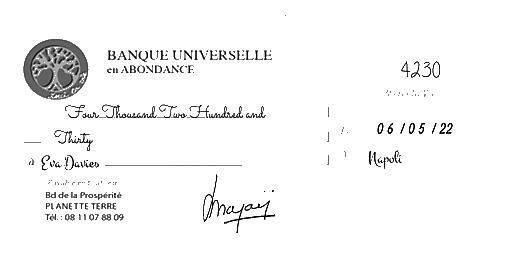 BANQUE UNIVERSELLE
en ABONDANCE
4230
Four Thousand Two Hundred and
Thirty
06/05/22
à Eva Davies
Napoli
Bd de la Prospérité
PLANETTE TERRE
Tél. : 08 11 07 88 09